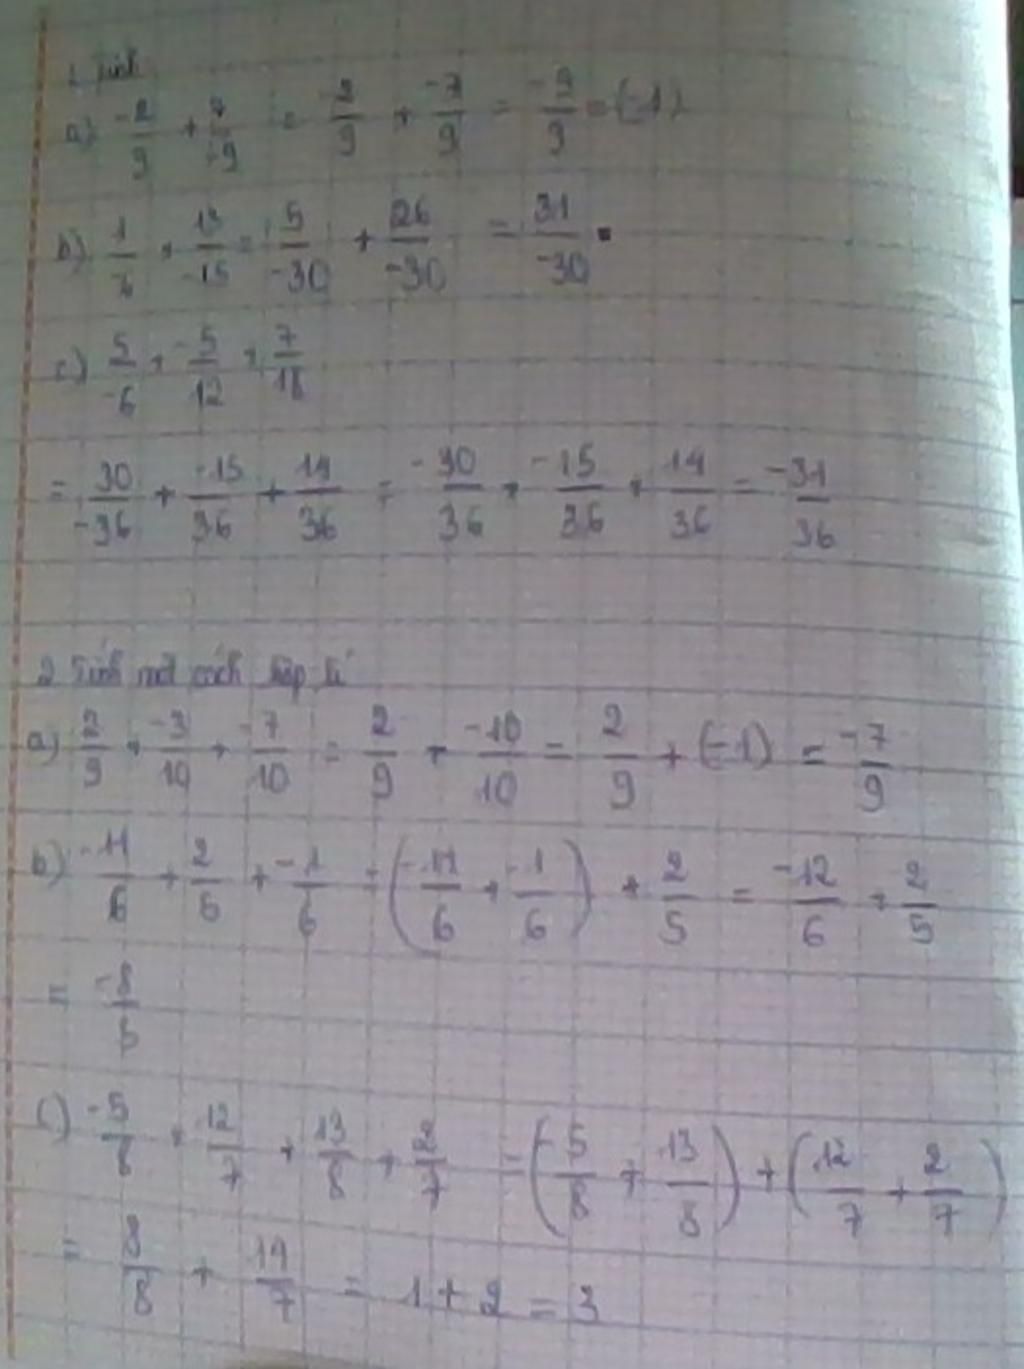 1 Tính
a) -2/9 + 7/-9 = -2/9 + -7/9 = -9/9 = (-1)
b) 1/6 + 13/-15 = 5/-30 + 26/-30 = 31/-30
c) 5/-6 + -5/12 + 7/18
= 30/-36 + -15/36 + 14/36 = -30/36 + -15/36 + 14/36 = -31/36
2 Tính một cách hợp lí
a) 2/9 + -3/10 + -7/10 = 2/9 + -10/10 = 2/9 + (-1) = -7/9
b) -11/6 + 2/5 + -1/6 = (-11/6 + -1/6) + 2/5 = -12/6 + 2/5
= -8/5
c) -5/8 + 12/7 + 13/8 + 2/7 = (-5/8 + 13/8) + (12/7 + 2/7)
= 8/8 + 14/7 = 1 + 2 = 3